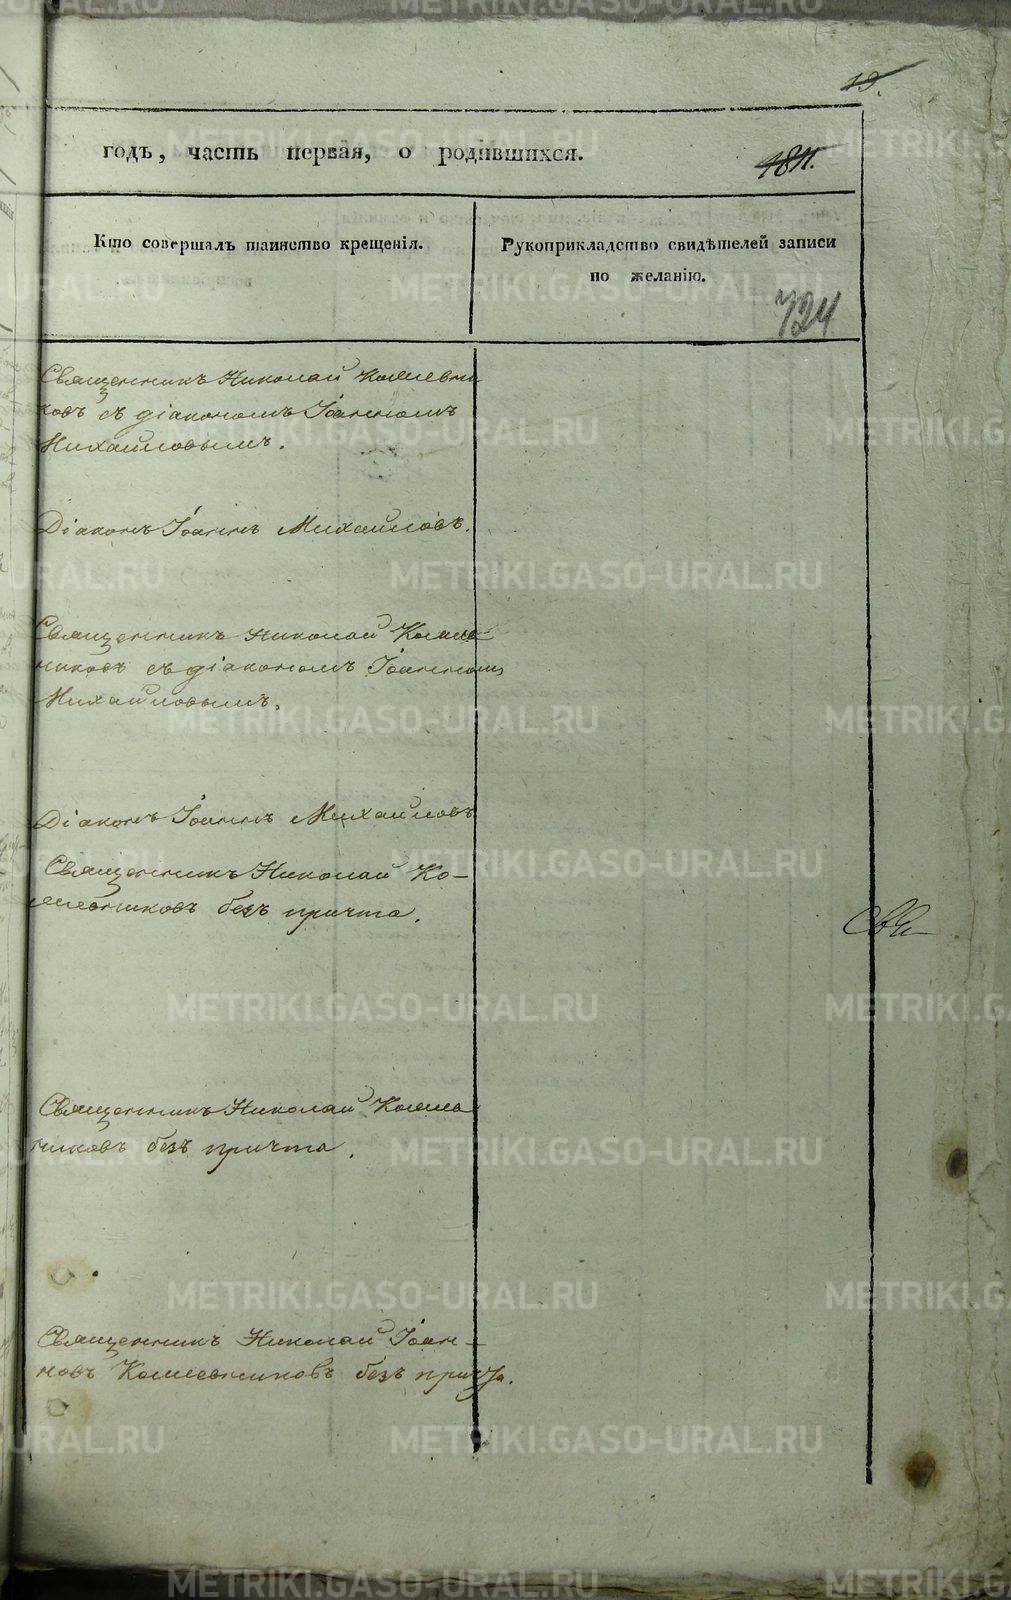 19.
годъ, часть первая, о родившихся.
184.
Кто совершалъ таинство крещенія.
Рукоприкладство свидѣтелей записи
по желанію.
724
Священникъ Николай Колшевни
ковъ съ діакономъ Іоанномъ
Михайловымъ.
Діаконъ Іоаннъ Михайловъ.
Священникъ Николай
никовъ съ діакономъ Іоанномъ
Михайловымъ.
Діаконъ Іоаннъ Михайловъ
Священникъ Николай Ко-
безъ причта.
Свя-
Священникъ Николай
никовъ безъ причта.
Священникъ Николай Іоан-
новъ безъ причта.
METRIKI.GASO-URAL.RU